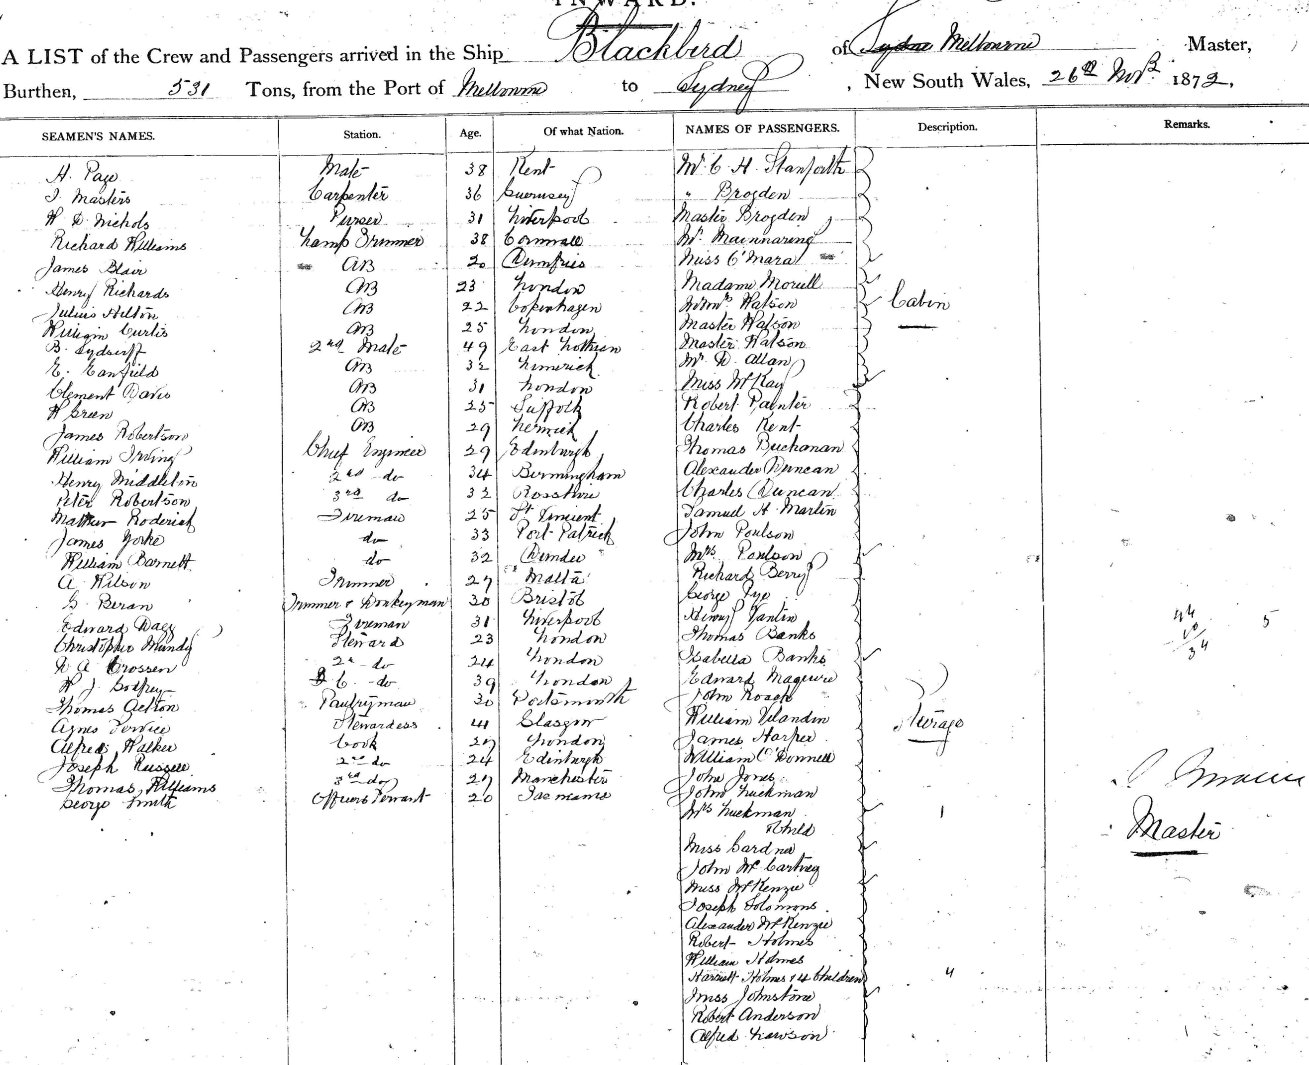 INWARD.
A LIST of the Crew and Passengers arrived in the Ship Blackbird of Melbourne Master,
Burthen, 531 Tons, from the Port of Melbourne to Sydney, New South Wales, 26th Novr 1872,
SEAMEN'S NAMES. Station. Age. Of what Nation. NAMES OF PASSENGERS. Description. Remarks.
H. Page Mate 38 Kent Mr C H Stanforth
J. Masters Carpenter 36 Guernsey " Brogden
W D Nichols Purser 31 Liverpool Master Brogden
Richard Williams Lamp Trimmer 38 Cornwall Mr Mainnaring
James Blair AB 20 Dumfries Miss O'Mara
Henry Richards AB 23 London Madame Morell
Julius Hilton AB 22 Copenhagen Watson Cabin
William Curtis AB 25 London Master Watson
B. 2nd Mate 49 East Lothian Master Watson
E. Canfield AB 32 Limerick Mr D Allan
Clement Davis AB 31 London Miss McKay
W Green AB 25 Suffolk Robert Painter
James Robertson AB 29 Charles Kent
William Irving Chief Engineer 29 Edinburgh Thomas Buchanan
Henry Middleton 2nd do 34 Birmingham Alexander Duncan
Peter Robertson 3rd do 32 Rosshire Charles Duncan
Mathew Roderick Fireman 25 St Vincent Samuel H Martin
James Yorke do 33 Port Patrick John Poulson
William Barnett do 32 Dundee Mrs Poulson
A Wilson Trimmer 27 Malta Richard Berry
G. Beran Trimmer & Donkeyman 30 Bristol George Pye
Edward Dagg Fireman 31 Liverpool Henry Vantin
Christopher Mundy Steward 23 London Thomas Banks
W A Crossen 2nd do 24 London Isabella Banks
W J Godfrey do 39 London Edward Maguire
Thomas Acton Pantryman 30 Portsmouth John Roach
Agnes Stewardess 41 Glasgow William Steerage
Alfred Walker Cook 27 London James Harper
Joseph Russell 2nd do 24 Edinburgh William O'Donnell
Thomas Williams 3rd do 27 Manchester John Jones
George Smith Officers Servant 20 Tasmania John Luckman
Mrs Luckman 1
Child
Miss Gardner
John McCartney
Miss McKenzie
Joseph Solomons
Alexander McKenzie
Robert Holmes
William Holmes
Harriett Holmes & 4 Children 4
Miss Johnstone
Robert Anderson
Alfred Lawson
44
10
34
5
Master